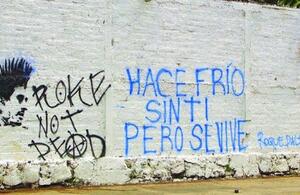 ROKE
NOT
DEAD
HACE FRÍO
SIN TI
PERO SE VIVE
ROQUE DAL